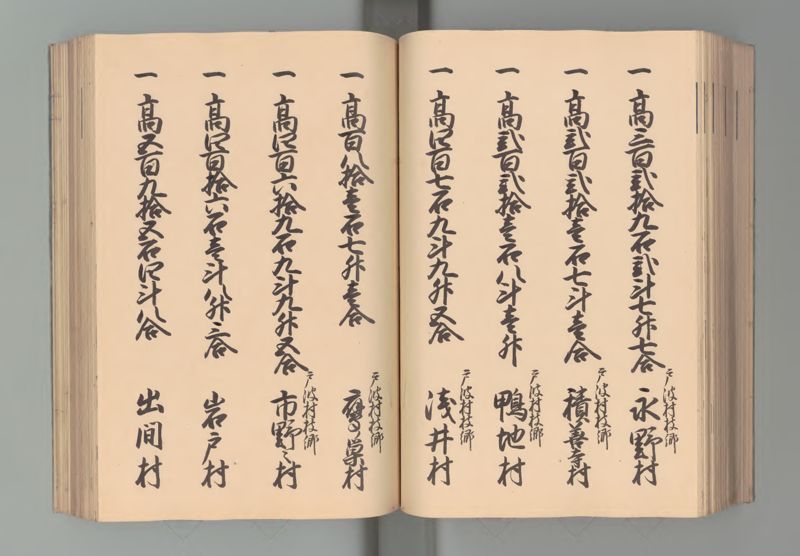 一高三百弐拾九石弐斗七升七合
戸波村枝郷
永野村
一高弐百弐拾壱石七斗壱合
戸波村枝郷
積善寺村
一高弐百弐拾壱石八斗壱升
戸波村枝郷
鴨地村
一高四百七石九斗九升五合
戸波村枝郷
浅井村
一高百八拾壱石七升壱合
戸波村枝郷
鷹ノ巣村
一高四百六拾九石九斗九升五合
戸波村枝郷
市野々村
一高四百拾六石壱斗八升三合
岩戸村
一高五百九拾五石四斗八合
出間村